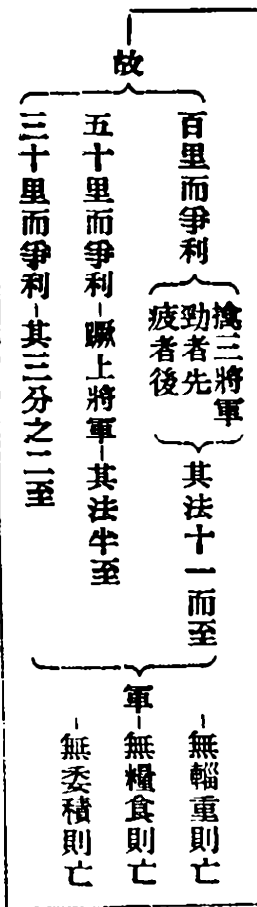 故
百里而爭利
擒三將軍
勁者先
疲者後
其法十一而至
五十里而爭利-蹶上將軍-其法半至
三十里而爭利-其三分之二至
軍
-無輜重則亡
-無糧食則亡
-無委積則亡